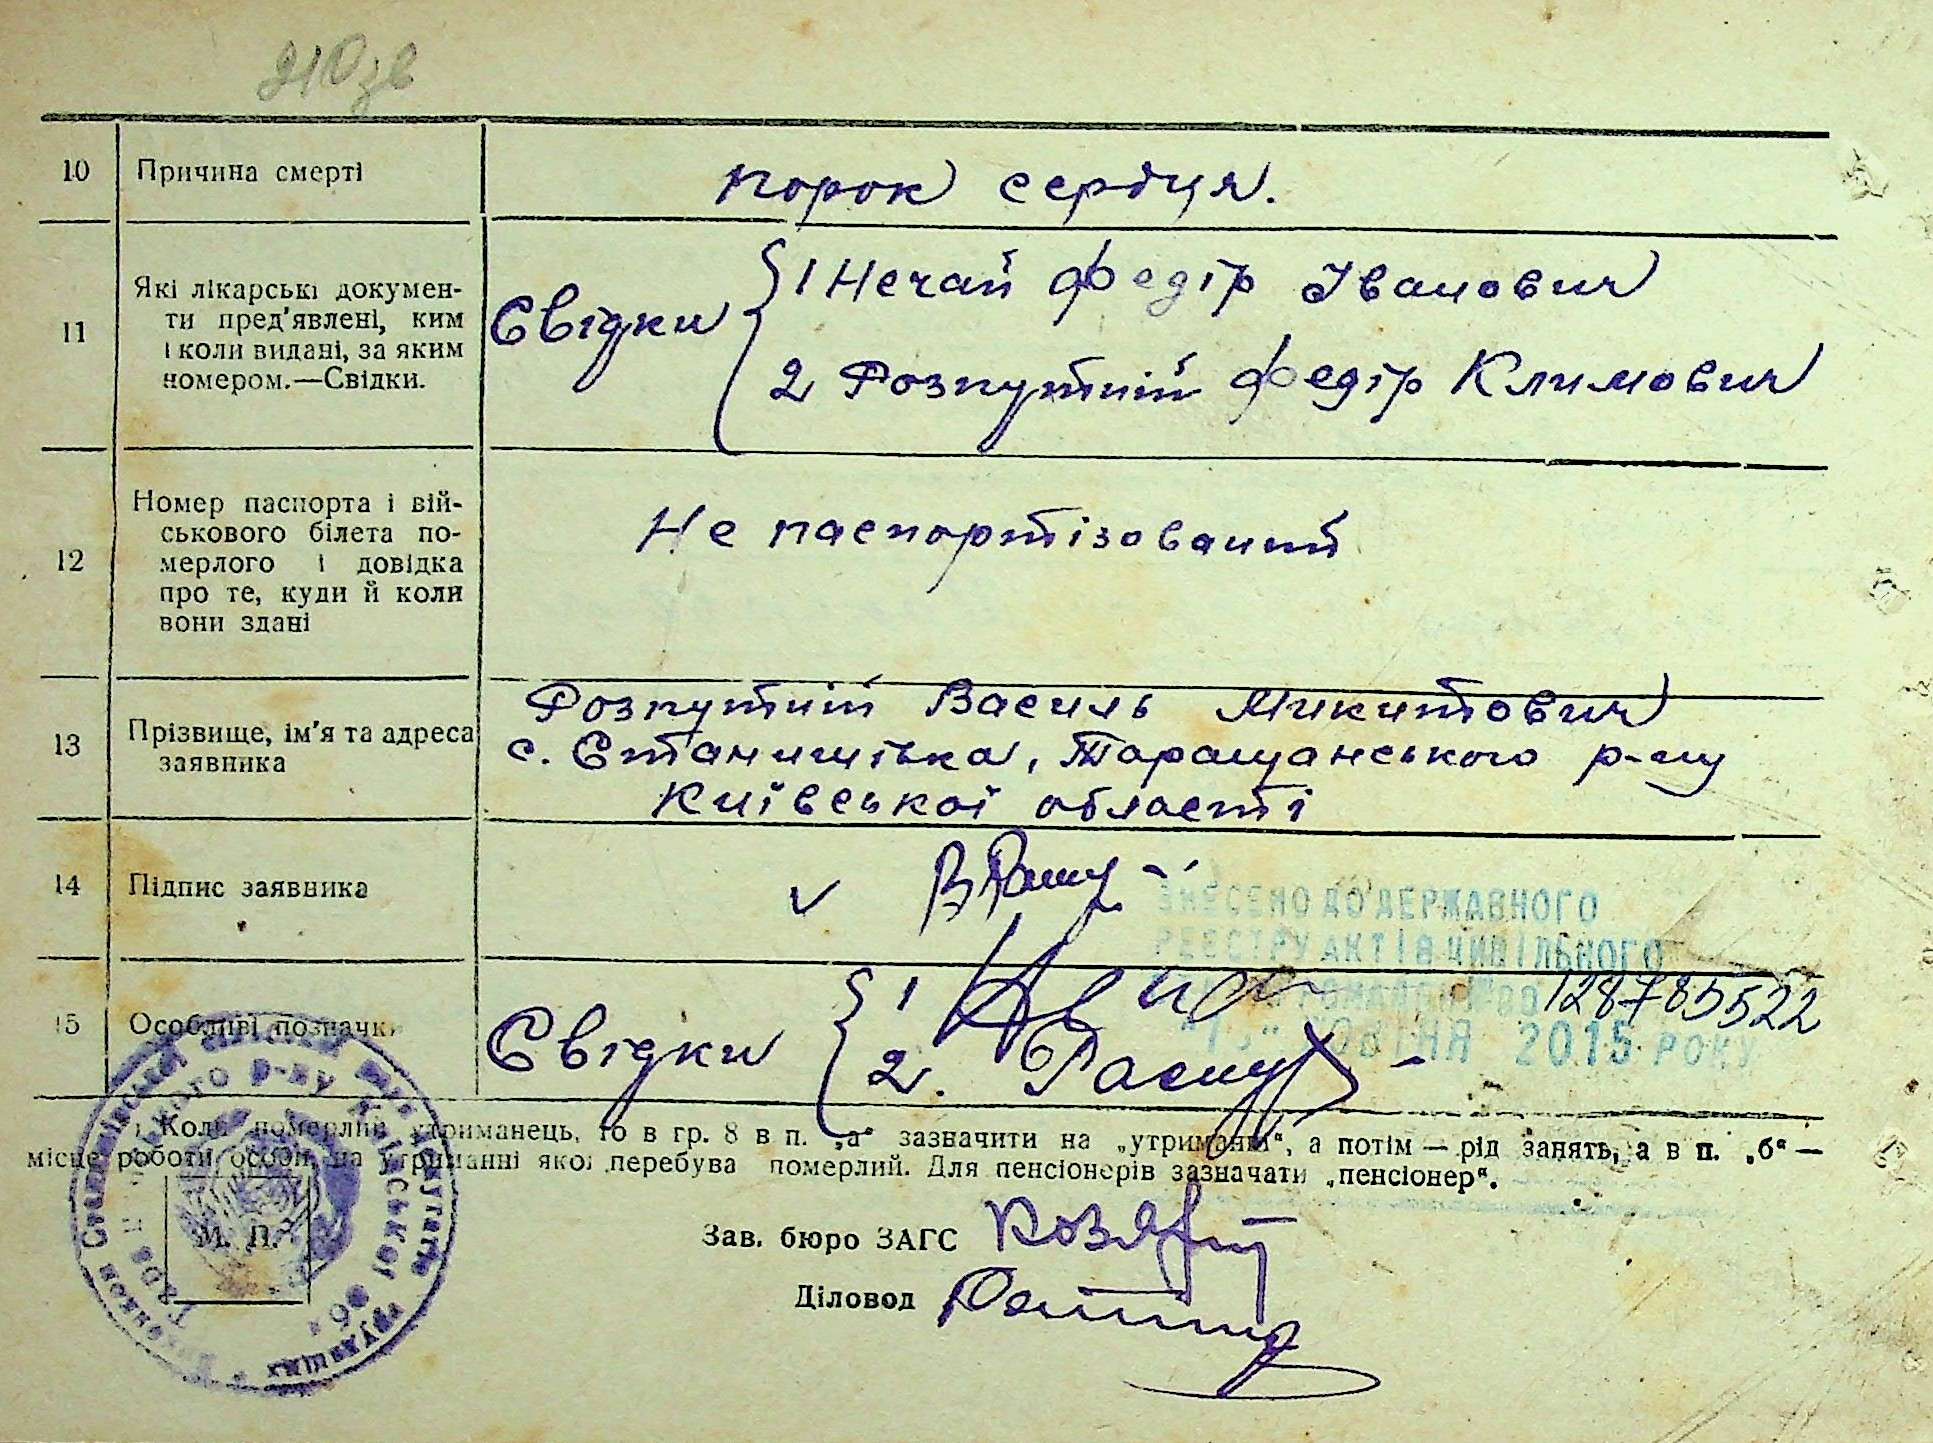 210зв
10 Причина смерті порок сердця.
11 Які лікарські докумен-
ти пред'явлені, ким
і коли видані, за яким
номером.—Свідки.
Свідки
1 Нечай Федір Іванович
2 Розпутній Федір Климович
12 Номер паспорта і вій-
ськового білета по-
мерлого і довідка
про те, куди й коли
вони здані
Не паспортізований
13 Прізвище, ім'я та адреса
заявника
Розпутній Василь Микитович
с. Станишівка, Таращанського р-ну
Київської області
14 Підпис заявника
ЗНЕСЕНО ДО ДЕРЖАВНОГО
РЕЄСТРУ АКТІВ ЦИВІЛЬНОГО
128785522
2015 РОКУ
15 Особливі позначки
Свідки
1
2.
Коли померлий утриманець, то в гр. 8 в п. „а“ зазначити на „утриманні“, а потім — рід занять, а в п. „б“ —
місце роботи особи, на утриманні якої перебува померлий. Для пенсіонерів зазначати „пенсіонер“.
Зав. бюро ЗАГС
Діловод
М. П.
р-ну Київської обл.